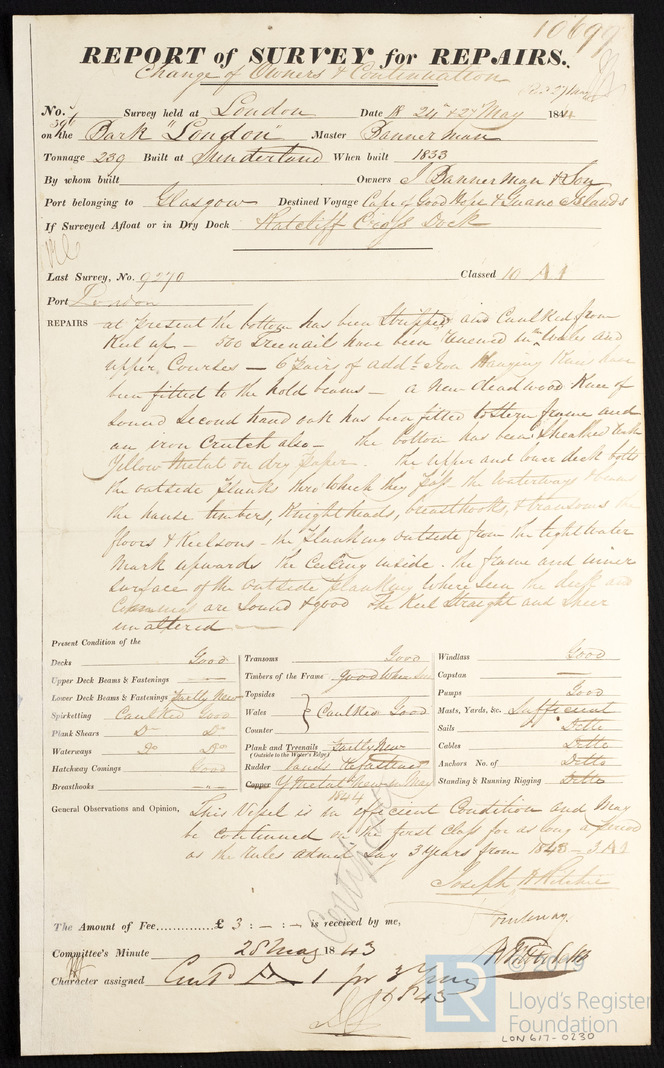 10699
REPORT of SURVEY for REPAIRS.
Change of Owners & Continuation
No. Survey held at London Date 24 & 27 May 1844
on the Bark "London" Master Bannerman
Tonnage 239 Built at Sunderland When built 1833
By whom built Owners J Bannerman & Son
Port belonging to Glasgow Destined Voyage Cape of Good Hope & Guano Islands
If Surveyed Afloat or in Dry Dock Ratcliff Cross Dock
Last Survey, No. 9270 Classed 10 A 1
Port London
REPAIRS at present the bottom has been stripped and Caulked from
Keel up — 500 Treenails have been renewed in Wales and
upper Courses — 6 pairs of addl. Iron Hanging Knees have
been fitted to the hold beams — a new deadwood Knee of
sound second hand oak has been fitted to stern frame and
an iron Crutch also — The bottom has been sheathed with
Yellow Metal on dry paper. The upper and lower deck bolts
the outside planks thro which they pass the waterways & beams
the hause timbers, Knightheads, breasthooks, & transoms the
floors & Kielsons — the planking outside from the light water
mark upwards the Ceiling inside. the frame and inner
surface of the outside planking where seen the deck and
Comings are sound & good the Keel straight and sheer
unaltered
Present Condition of the
Decks Good
Upper Deck Beams & Fastenings
Lower Deck Beams & Fastenings Partly New
Spirketting Caulked Good
Plank Shears Do Do
Waterways Do Do
Hatchway Comings Good
Breasthooks
Transoms Good
Timbers of the Frame Good where seen
Topsides
Wales } Caulked Good
Counter
Plank and Treenails Partly New
(Outside to the Water's Edge)
Rudder
Copper Y Metal New in May
1844
Windlass Good
Capstan
Pumps Good
Masts, Yards, &c. Sufficient
Sails Ditto
Cables Ditto
Anchors No. of Ditto
Standing & Running Rigging Ditto
General Observations and Opinion, This Vessel is in efficient Condition and may
be continued on the first class for as long a period
as the rules admit say 3 years from 1843 — 3 A 1
Joseph H Ritchie
The Amount of Fee £ 3 : — : — is received by me,
Committee's Minute 28 May 1843
Character assigned Contd A 1 for 3 Years
1843
© 2019
LR
Lloyd's Register
Foundation
LON617-0230